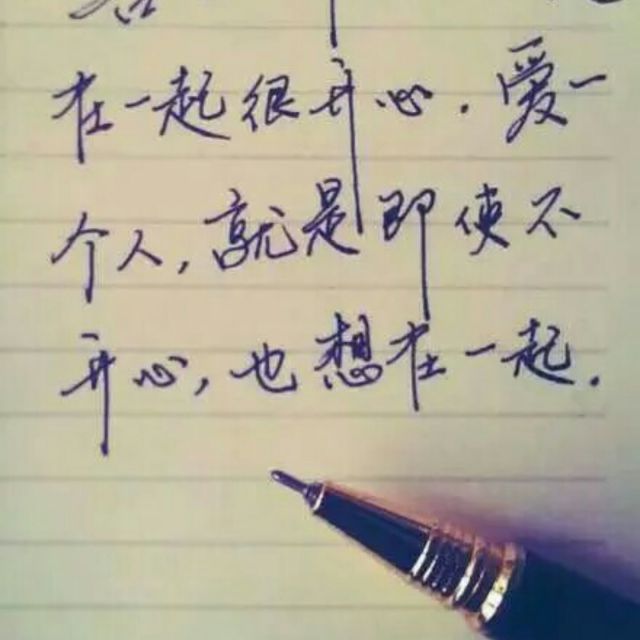 在一起很开心.爱一
个人,就是即使不
开心,也想在一起.